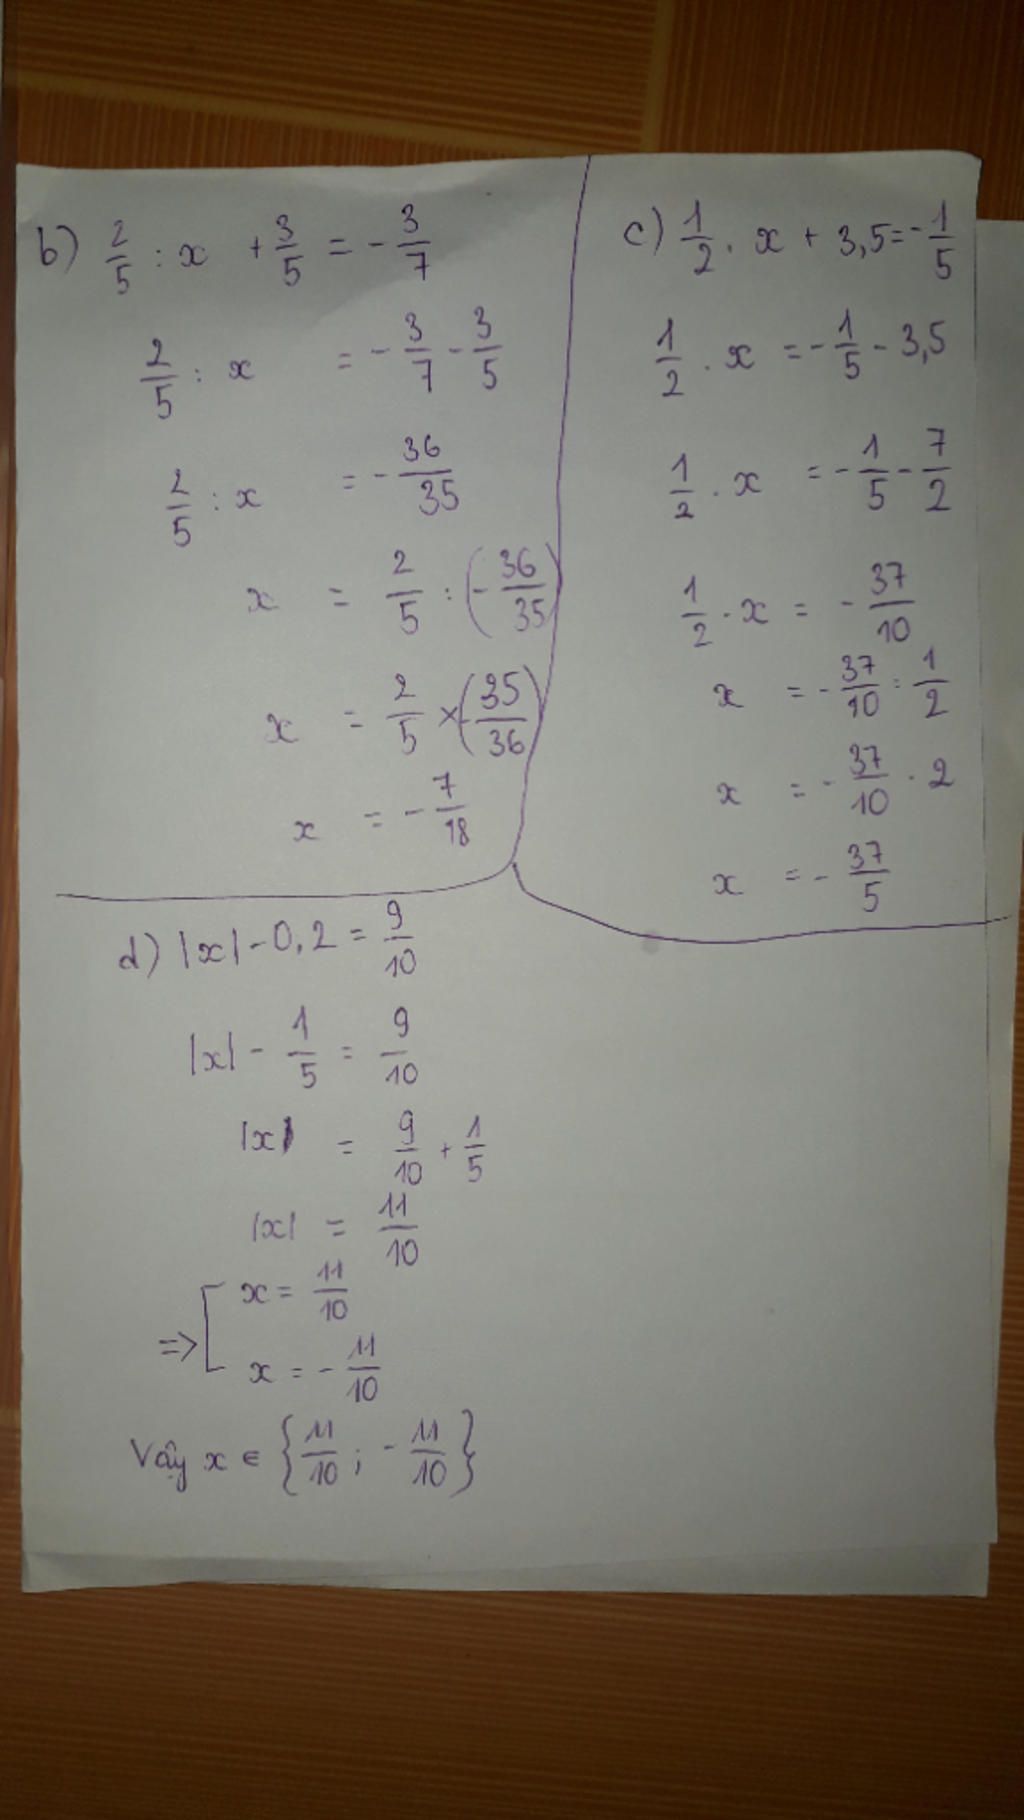 b) 2/5 : x + 3/5 = - 3/7
2/5 : x = - 3/7 - 3/5
2/5 : x = - 36/35
x = 2/5 : (- 36/35)
x = 2/5 × (- 35/36)
x = - 7/18
c) 1/2 . x + 3,5 = - 1/5
1/2 . x = - 1/5 - 3,5
1/2 . x = - 1/5 - 7/2
1/2 . x = - 37/10
x = - 37/10 : 1/2
x = - 37/10 . 2
x = - 37/5
d) |x| - 0,2 = 9/10
|x| - 1/5 = 9/10
|x| = 9/10 + 1/5
|x| = 11/10
=> [ x = 11/10
x = - 11/10
Vậy x ∈ {11/10 ; - 11/10}